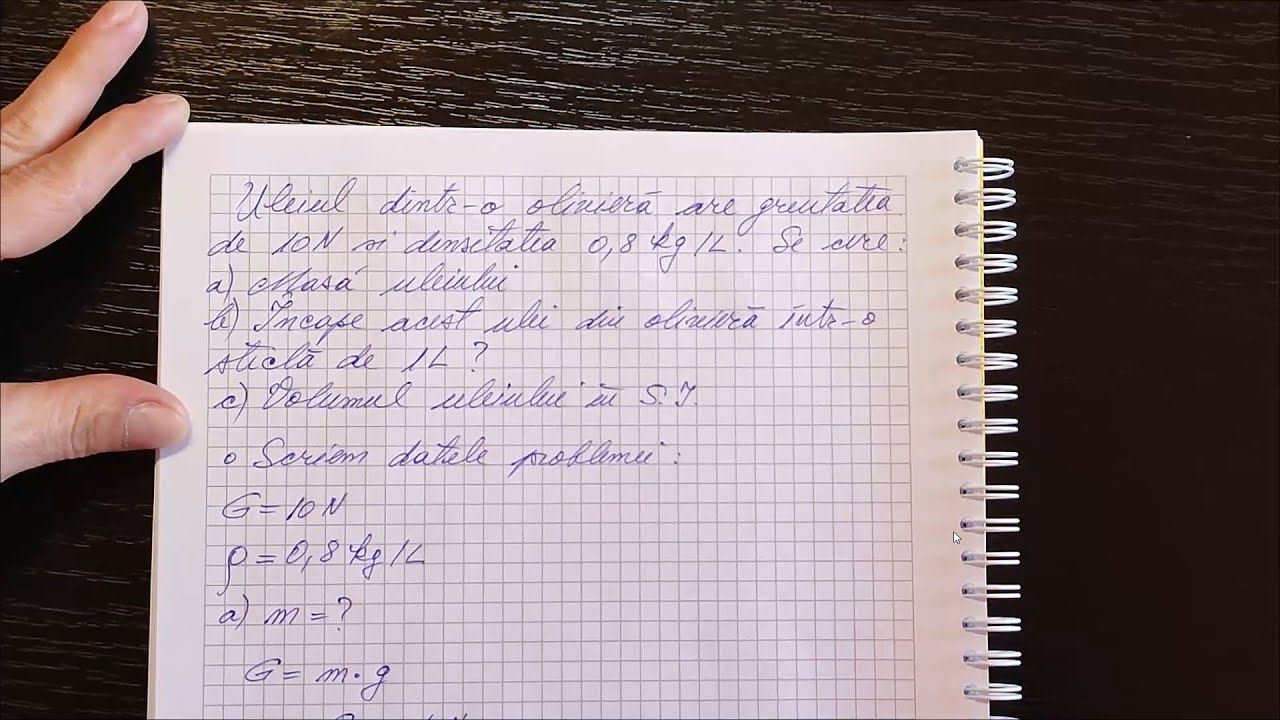 Uleiul dintr-o olivieră are greutatea
de 10N și densitatea 0,8 kg/L. Se cere:
a) Masa uleiului
b) Încape acest ulei din olivieră într-o
sticlă de 1L?
c) Volumul uleiului în S.I.
o Scriem datele problemei:
G = 10N
ρ = 0,8 kg/L
a) m = ?
G = m · g